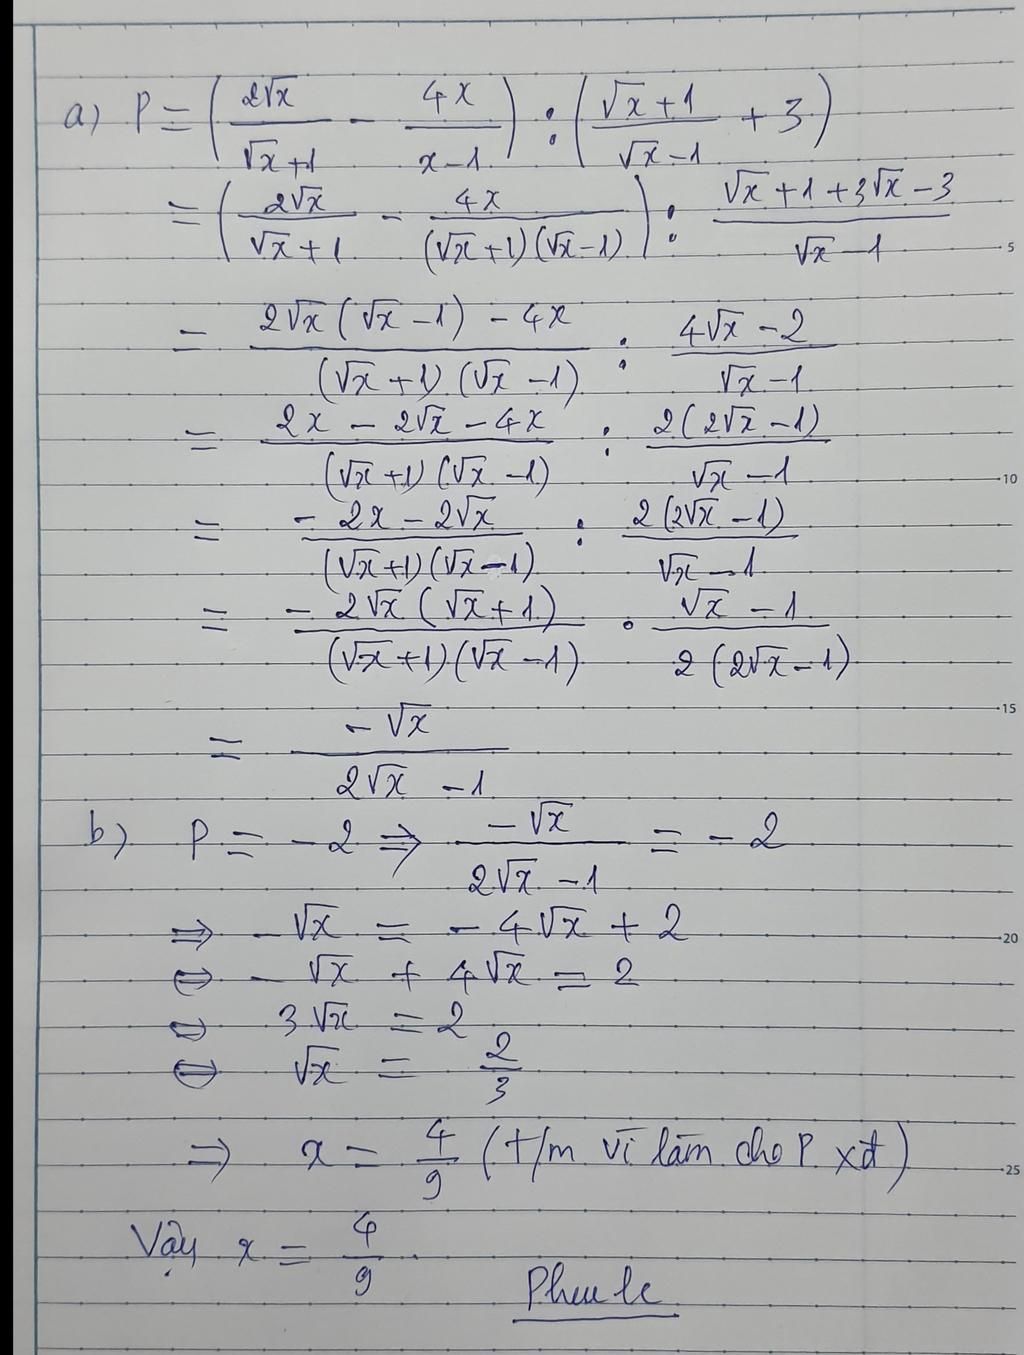 a) P = (2√x / √x+1 - 4x / x-1) : (√x+1 / √x-1 + 3)
= (2√x / √x+1 - 4x / (√x+1)(√x-1)) : √x+1+3√x-3 / √x-1
= 2√x(√x-1) - 4x / (√x+1)(√x-1) : 4√x-2 / √x-1
= 2x - 2√x - 4x / (√x+1)(√x-1) : 2(2√x-1) / √x-1
= -2x - 2√x / (√x+1)(√x-1) : 2(2√x-1) / √x-1
= -2√x(√x+1) / (√x+1)(√x-1) . √x-1 / 2(2√x-1)
= -√x / 2√x-1
b) P = -2 ⇒ -√x / 2√x-1 = -2
⇒ -√x = -4√x + 2
⇔ -√x + 4√x = 2
⇔ 3√x = 2
⇔ √x = 2/3
⇒ x = 4/9 (t/m vì làm cho P xđ)
Vậy x = 4/9.
5
10
15
20
25